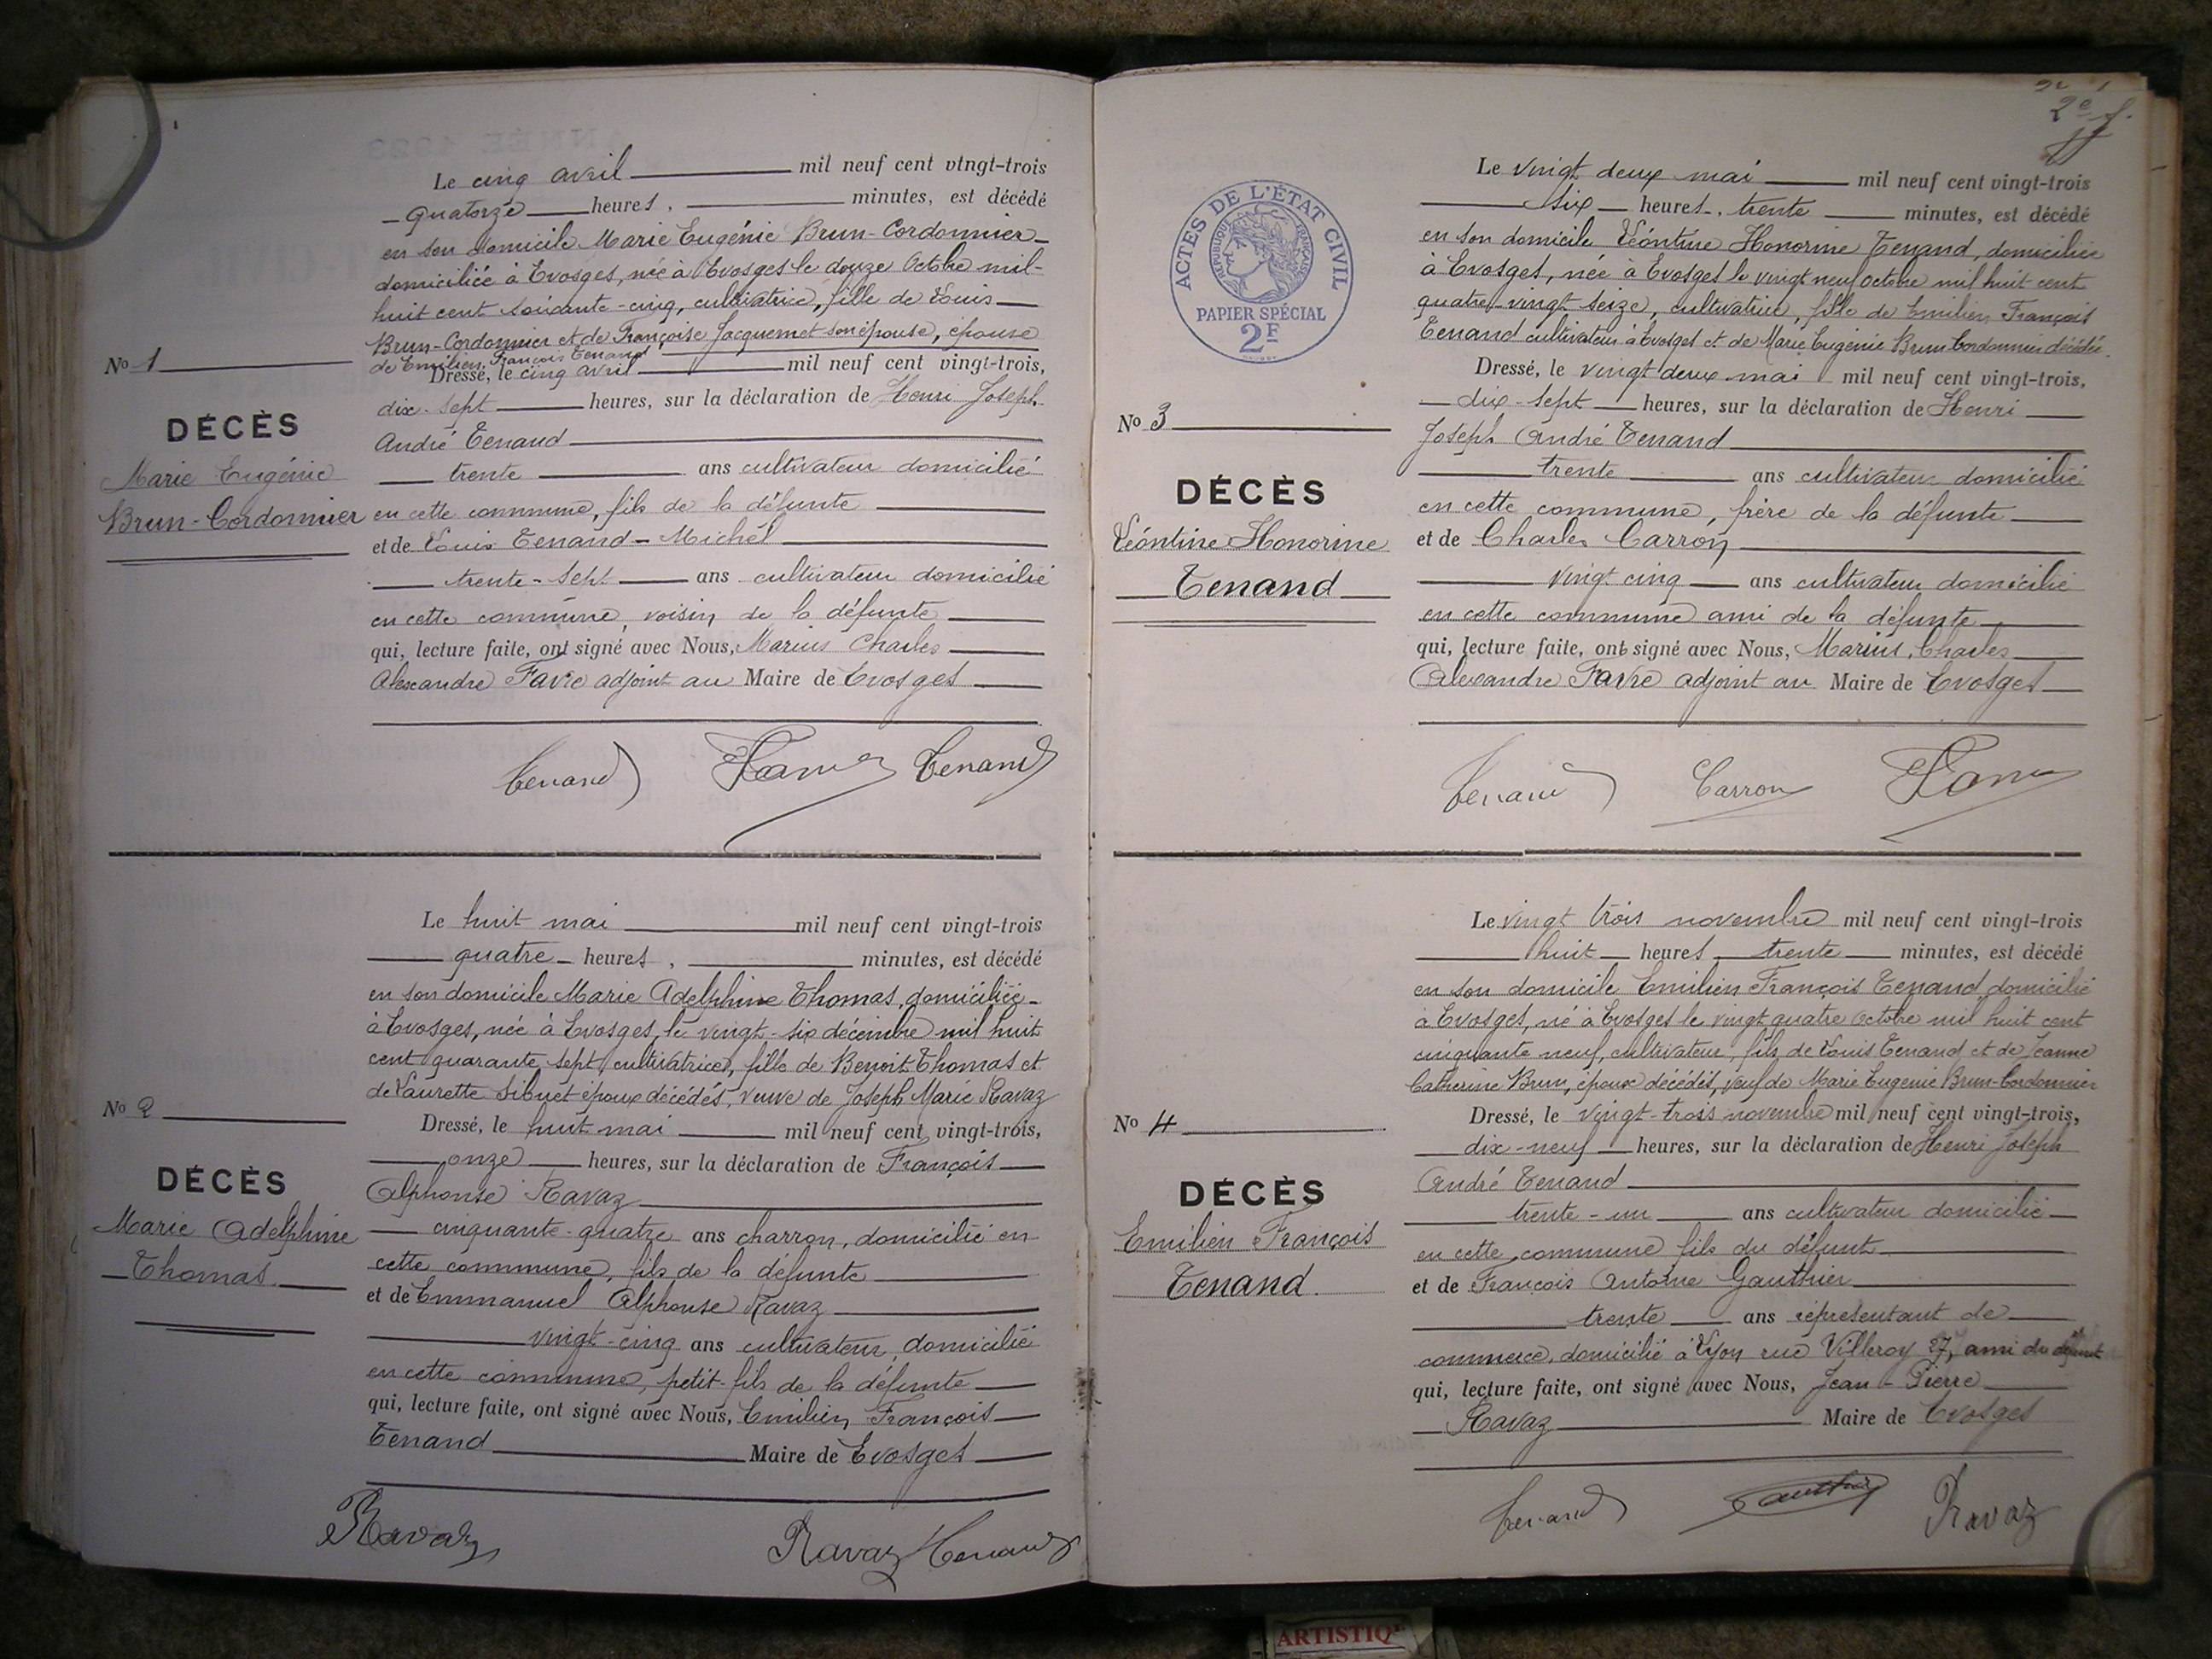 Le cinq avril mil neuf cent vingt-trois
quatorze heures, minutes, est décédé
en son domicile Marie Eugénie Brun-Cordonnier
domiciliée à Evosges, née à Evosges le douze Octobre mil-
huit cent soixante-cinq, cultivatrice, fille de Louis
Brun-Cordonnier et de Françoise Jacquemet son épouse, épouse
de Emilien François Tenand
No 1
Dressé, le cinq avril mil neuf cent vingt-trois,
dix-sept heures, sur la déclaration de Henri Joseph
DÉCÈS
André Tenand
Marie Eugénie
trente ans cultivateur domicilié
Brun-Cordonnier
en cette commune, fils de la défunte
et de Louis Tenand-Michel
trente-sept ans cultivateur domicilié
en cette commune, voisin de la défunte
qui, lecture faite, ont signé avec Nous, Marius Charles
Alexandre Favre adjoint au Maire de Evosges
Tenand Favre Tenand
Le huit mai mil neuf cent vingt-trois
quatre heures, minutes, est décédé
en son domicile Marie Adelphine Thomas, domiciliée
à Evosges, née à Evosges, le vingt-six décembre mil huit
cent quarante sept, cultivatrice, fille de Benoit Thomas et
de Laurette Sibuet époux décédés, veuve de Joseph Marie Ravaz
No 2
Dressé, le huit mai mil neuf cent vingt-trois,
onze heures, sur la déclaration de François
DÉCÈS
Alphonse Ravaz
Marie Adelphine
cinquante-quatre ans charron, domicilié en
Thomas
cette commune, fils de la défunte
et de Emmanuel Alphonse Ravaz
vingt-cinq ans cultivateur, domicilié
en cette commune, petit-fils de la défunte
qui, lecture faite, ont signé avec Nous, Emilien François
Tenand Maire de Evosges
Ravaz Ravaz Tenand
2e f.
ACTES DE L'ÉTAT CIVIL
RÉPUBLIQUE FRANÇAISE
PAPIER SPÉCIAL
2F
Le vingt deux mai mil neuf cent vingt-trois
six heures, trente minutes, est décédé
en son domicile Léontine Honorine Tenand, domiciliée
à Evosges, née à Evosges le vingt neuf octobre mil huit cent
quatre-vingt-seize, cultivatrice, fille de Emilien François
Tenand cultivateur à Evosges et de Marie Eugénie Brun Cordonnier décédée
Dressé, le vingt deux mai mil neuf cent vingt-trois,
No 3
dix-sept heures, sur la déclaration de Henri
Joseph André Tenand
DÉCÈS
trente ans cultivateur domicilié
Léontine Honorine
en cette commune, frère de la défunte
Tenand
et de Charles Carron
vingt cinq ans cultivateur domicilié
en cette commune ami de la défunte
qui, lecture faite, ont signé avec Nous, Marius, Charles
Alexandre Favre adjoint au Maire de Evosges
Tenand Carron Favre
Le vingt trois novembre mil neuf cent vingt-trois
huit heures trente minutes, est décédé
en son domicile Emilien François Tenand domicilié
à Evosges, né à Evosges le vingt quatre Octobre mil huit cent
cinquante neuf, cultivateur, fils de Louis Tenand et de Jeanne
Catherine Brun, époux décédés, veuf de Marie Eugenie Brun-Cordonnier
No 4
Dressé, le vingt-trois novembre mil neuf cent vingt-trois,
dix-neuf heures, sur la déclaration de Henri Joseph
DÉCÈS
André Tenand
trente-un ans cultivateur domicilié
Emilien François
en cette commune fils du défunt
Tenand
et de François Antoine Gauthier
trente ans représentant de
commerce, domicilié à Lyon rue Villeroy 27, ami du défunt
qui, lecture faite, ont signé avec Nous, Jean-Pierre
Ravaz Maire de Evosges
Tenand Gauthier Ravaz
ARTISTIQ